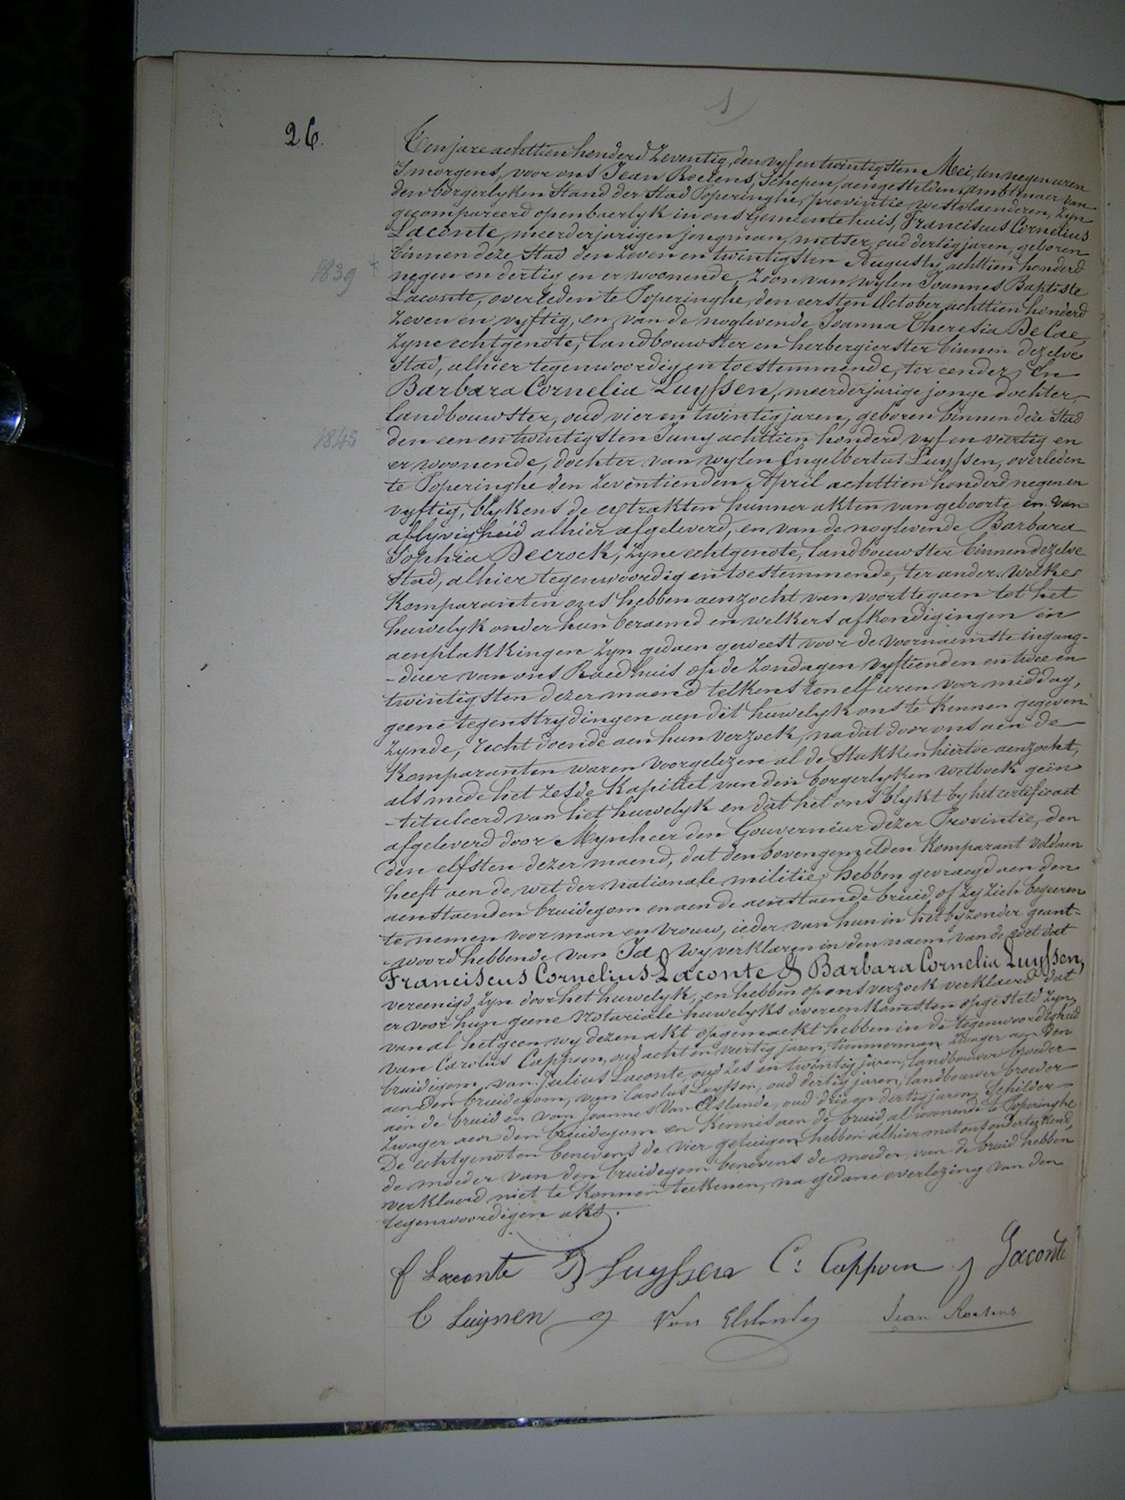 26.
Ten jare achttien honderd Zeventig, den vyf en twintigsten Mei, ten negen uren
Smorgens, voor ons Jean Roelens, Schepen, aengestelden ambtenaer van
den borgerlyken Stand der Stad Poperinghe, provintie Westvlaenderen, Zyn
gecompareerd openbaerlyk in ons Gemeentehuis, Franciscus Cornelius
Laconte, meerderjarigen jongman, metser, oud dertig jaren, geboren
binnen deze Stad den Zeven en twintigsten Augusty achttien honderd
1839
negen en dertig en er woonende, Zoon van wylen Joannes Baptiste
Laconte, overleden te Poperinghe, den eersten October achttien honderd
Zeven en vyftig, en van de noglevende Joanna Theresia De Cae,
Zyne echtgenote, Landbouwster en herbergierster binnen dezelve
Stad, alhier tegenwoordig en toestemmende, ter eender, En
Barbara Cornelia Luyssen, meerderjarige jonge dochter,
landbouwster, oud vier en twintig jaren, geboren binnen deze Stad
1845
den een en twintigsten Juny achttien honderd vyf en veertig en
er woonende, dochter van wylen Engelbertus Luyssen, overleden
te Poperinghe den Zeventienden April achttien honderd negen en
vyftig, blykens de extrakten hunner akten van geboorte en van
aflyvigheid alhier afgeleverd, en van de noglevende Barbara
Sophia Decrock, Zyne echtgenote, Landbouwster binnen dezelve
Stad, alhier tegenwoordig en toestemmende, ter ander. Welke
Komparanten ons hebben aenzocht van voorttegaen tot het
huwelyk onder hun beraemd en welkers afkondigingen en
aenplakkingen Zyn gedaen geweest voor de voornaemste ingang-
-deur van ons Raedhuis op de Zondagen vyftienden en twee en
twintigsten dezer maend telkens ten elf uren voor middag,
geene tegenstrydingen aen dit huwelyk ons te Kennen gegeven
Zynde, recht doende aen hun verzoek, na dat door ons aen de
Komparanten waren voorgelezen al de Stukken hiertoe aenzocht,
als mede het Zesde Kapittel van den borgerlyken wetboek geïn
-tituleerd van het huwelyk en dat het ons blykt by het certificaet
afgeleverd door Mynheer den Gouverneur dezer Provintie, den
den elfsten dezer maend, dat den bovengemelden Komparant voldaen
heeft aen de wet der nationale militie; hebben gevraegd aen den
aenstaenden bruidegom en aen de aenstaende bruid of zy Zich begeeren
te nemen voor man en vrouw, ieder van hun in het byzonder geant-
-woord hebbende van Ja, Wy verklaren in den naem van de wet dat
Franciscus Cornelius Laconte & Barbara Cornelia Luyssen,
vereenigd Zyn door het huwelyk, en hebben op ons verzoek verklaerd dat
er voor hun geene Notariale huwelyks overeenkomsten opgesteld Zyn,
van al het geen wy dezen akt opgemaekt hebben in de tegenwoordigheid
van Carolus Cappoen, oud acht en veertig jaren, timmerman, Zwager aen den
bruidegom, van Julius Laconte, oud Zes en twintig jaren, landbouwer, broeder
aen den bruidegom, van Carolus Luyssen, oud dertig jaren, landbouwer broeder
aen de bruid en van Joannes Van Elslande, oud drie en dertig jaren, Schilder
Zwager aen den bruidegom en Kennis aen de bruid, al woonende te Poperinghe
De echtgenoten benevens de vier getuigen hebben alhier met ons onderteekend,
de moeder van den bruidegom benevens de moeder van de bruid hebben
verklaerd niet te Konnen teekenen, na gedane overlezing van den
tegenwoordigen akt.
f Laconte B Luyssen C: Cappoen J Laconte
C Luyssen J Van Elslande Jean Roelens